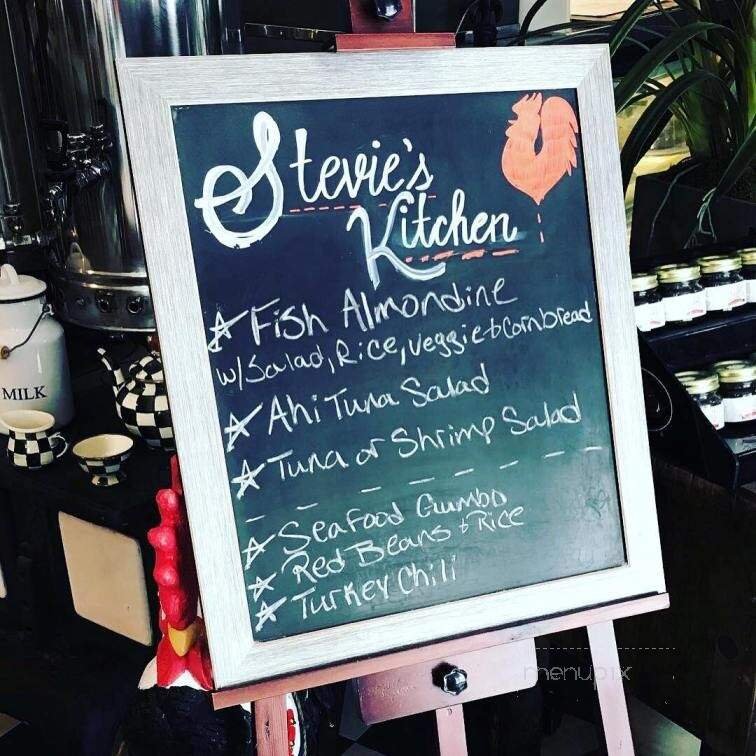 Stevie's
Kitchen
☆ Fish Almondine
w/Salad, Rice, veggie & Cornbread
☆ Ahi Tuna Salad
☆ Tuna or Shrimp Salad
☆ Seafood Gumbo
☆ Red Beans & Rice
☆ Turkey Chili
MILK
menupix